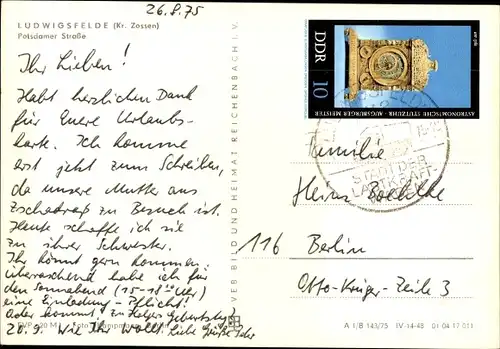 26.8.75
LUDWIGSFELDE (Kr. Zossen)
Potsdamer Straße
Ihr Lieben!
Habt herzlichen Dank
für Euere Urlaubs-
karte. Ich komme
erst jetzt zum Schreiben,
da unsere Mutter aus
Zschadraß zu Besuch ist.
Heute schaffe ich sie
zu ihrer Schwester.
Ihr könnt gern kommen.
Überraschend habe ich für
den Sonnabend (15-18 Uhr)
eine Einladung - Pflicht!
oder kommt zu Geburtstag
28.9. Wie Ihr wollt. Liebe Grüße
EVP 20 M Foto
VEB BILD UND HEIMAT REICHENBACH I. V.
DDR
10
ASTRONOMISCHE STUTZUHR · AUGSBURGER MEISTER
STADT DER
Familie
Heinz
116 Berlin
Otto-Krüger-Zeile 3
A 1/B 143/75 IV-14-48 01 04 17 011